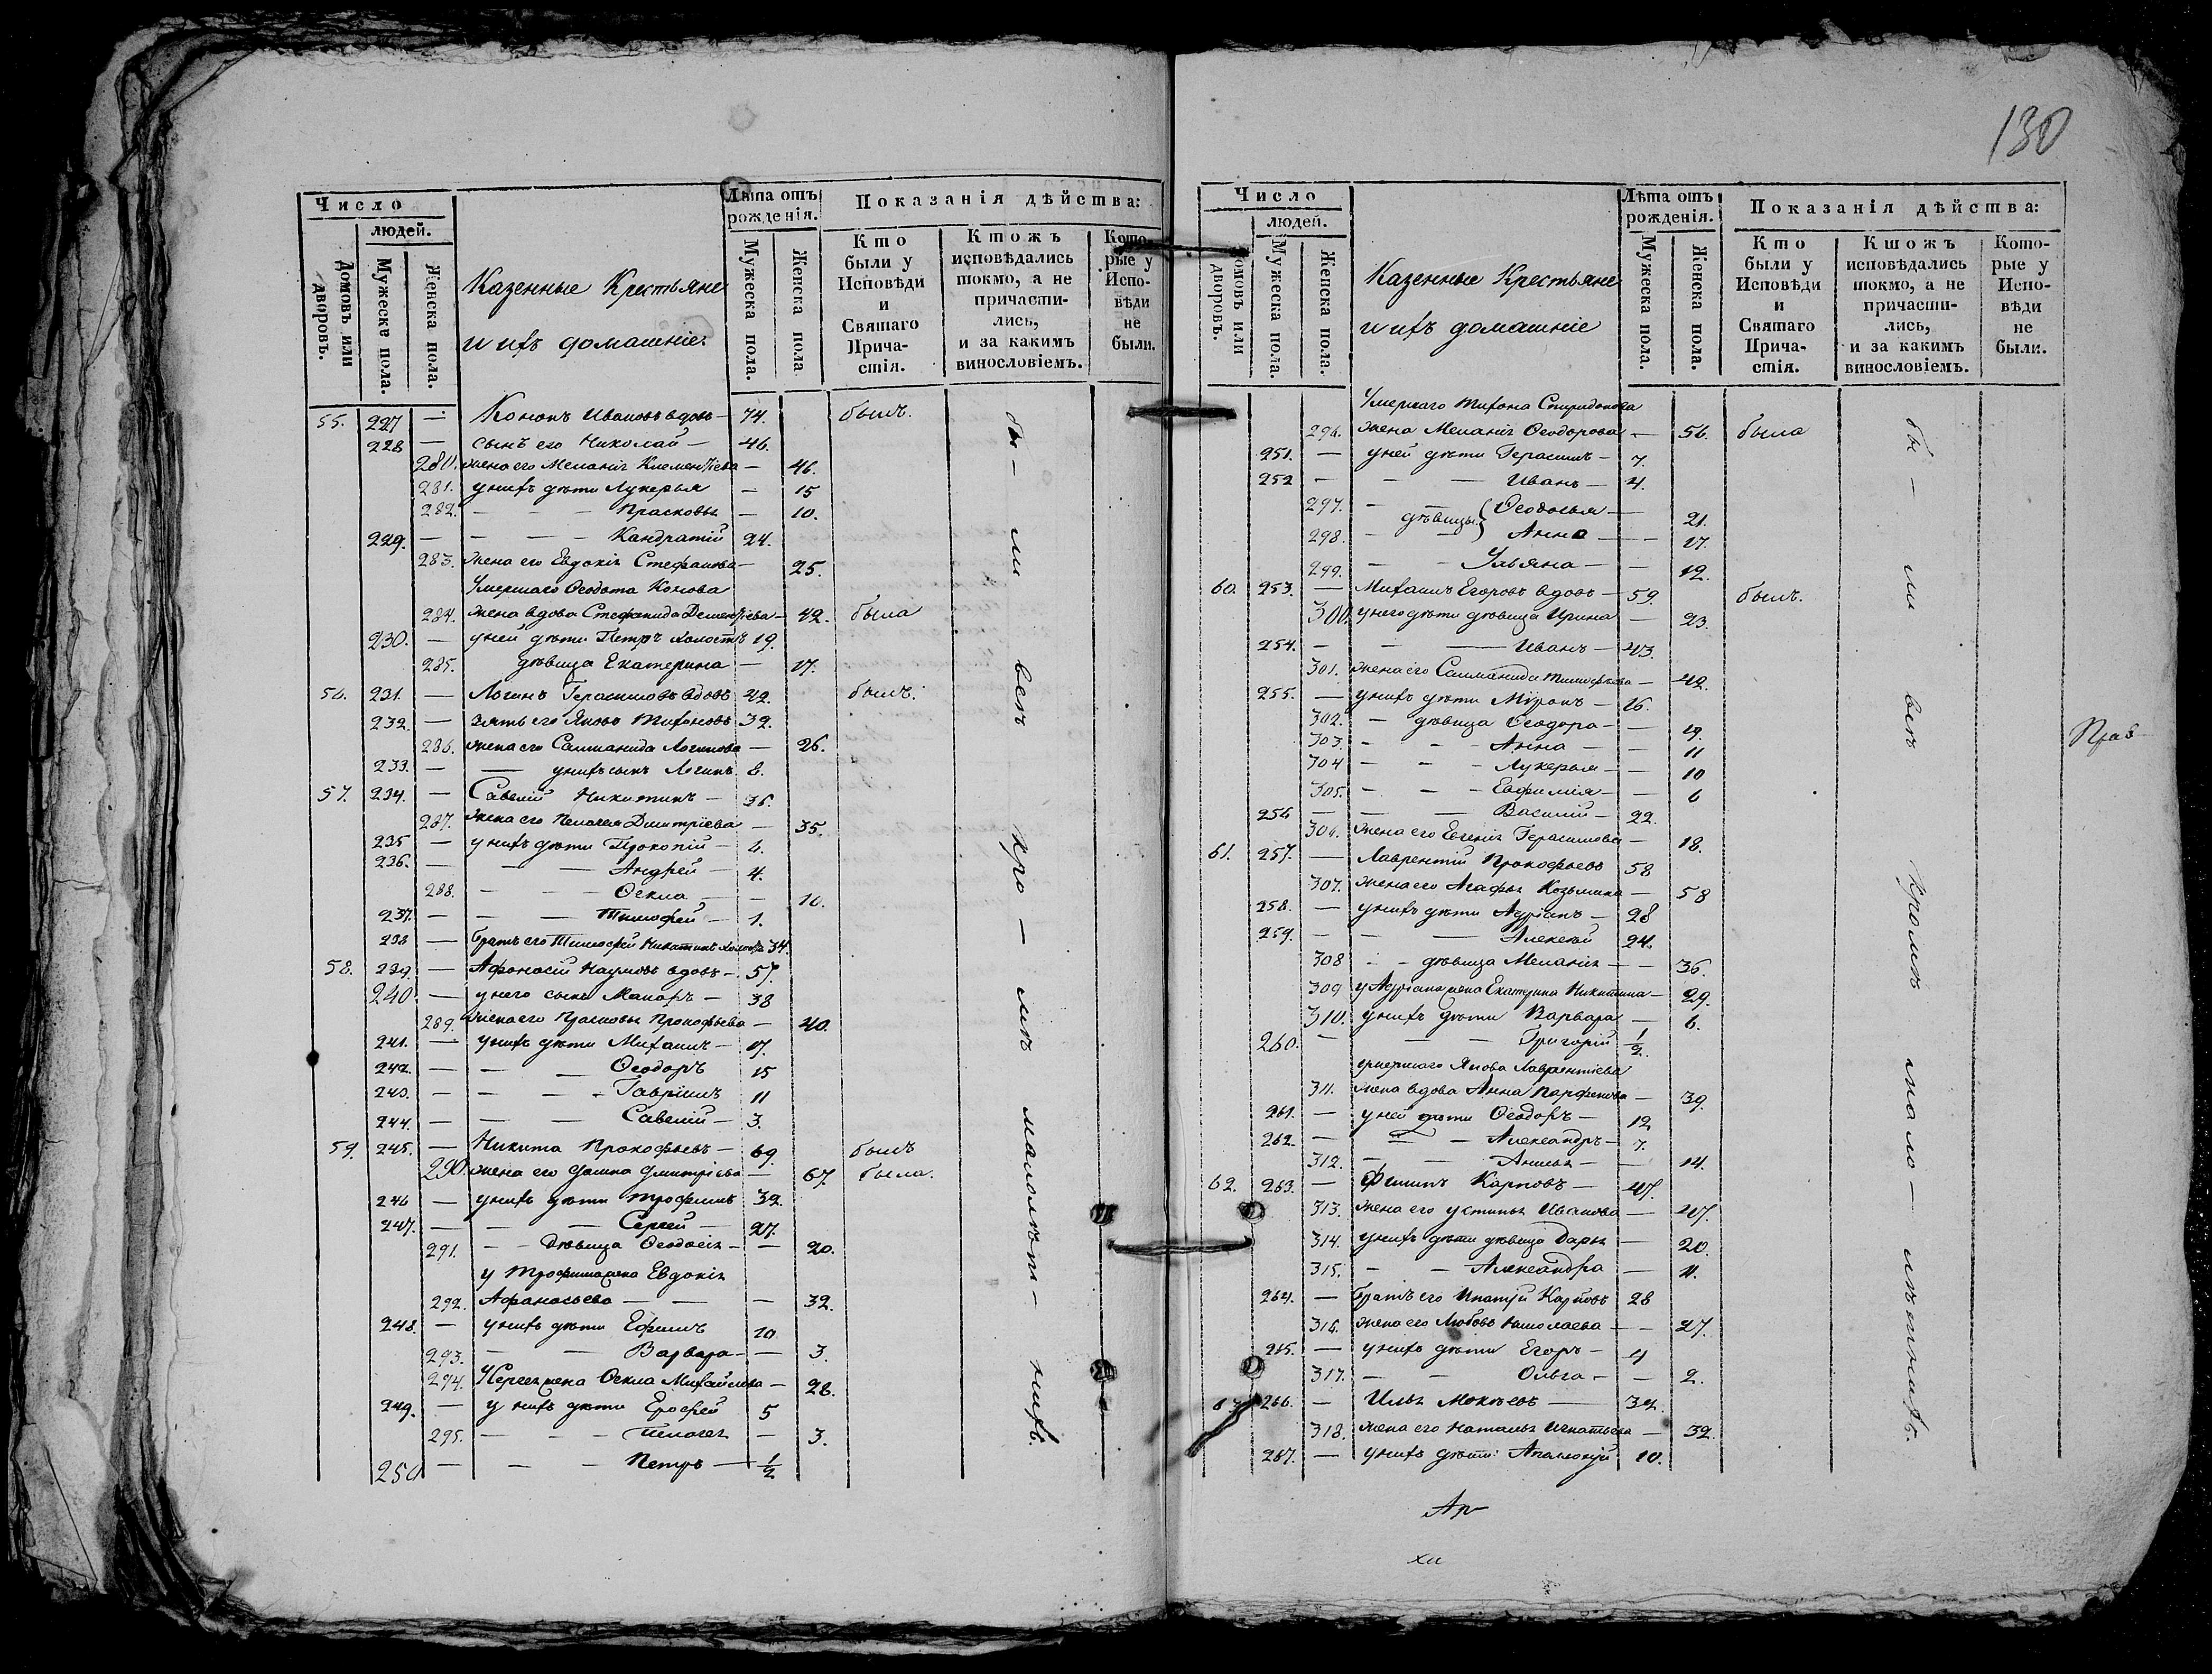 130
Число
людей.
Домовъ или дворовъ.
Мужеска пола.
Женска пола.
Казенные Крестьяне
и ихъ домашніе.
Лѣта отъ рожденія.
Мужеска пола.
Женска пола
Показанія дѣйства:
Кто были у Исповѣди и Святаго Прича-стія.
Ктожъ исповѣдались токмо, а не причасти-лись, и за какимъ винословіемъ.
Кото-рые у Испо-вѣди не были.
55. 227 — Кононъ Ивановъ вдовъ — 74. былъ.
228 — сынъ его Николай — 46.
280. жена его Меланія Клементіева — 46.
281. у нихъ дѣти Лукерья — 15
282. — — — Прасковья — 10.
229. — — — — Кандратій 24.
283. жена его Евдокія Стефанова — 25.
Умершаго Ѳеодота Конова
284. жена вдова Стефанида Дементіева — 42. была
230. — у ней дѣти Петръ холостъ 19.
285. дѣвица Екатерина — 17.
56. 231. — Логинъ Герасимовъ вдовъ 42. былъ.
232. — зять его Яковъ Тихоновъ 32.
286. жена его Саломанида Логинова — 26.
233. — — у нихъ сынъ Логинъ 8.
57. 234. — Савелій Никитинъ — 36.
287. жена его Пелагея Димитріева — 35.
235 — у нихъ дѣти Прокопій — 6.
236. — — — Андрей — 4.
288. — — — Ѳекла — — 10.
237. — — — Тимофей — 1.
238 — братъ его Тимофей Никитинъ холостъ 34.
58. 239. — Афонасій Наумовъ вдовъ — 57.
240. — у него сынъ Макаръ — 38
289. жена его Прасковья Прокофьева — 40.
241. — у нихъ дѣти Михаилъ — 17.
242. — — — Ѳеодоръ 15
243. — — — Гавріилъ 11
244. — — — Савелій — 3.
59. 245. — Никита Прокофьевъ — 69. былъ
290. жена его Домна Димитріева — 67. была.
246 — у нихъ дѣти Трофимъ 32.
247. — — — Сергей — 27.
291. — — Дѣвица Ѳеодосія — — 20.
у Трофима жена Евдокія
292. Афанасьева — — — 32.
248. — у нихъ дѣти Ефимъ 10
293. — — Варвара — — 3.
294. У Сергея жена Ѳекла Михайлова — 28.
249. — у нихъ дѣти Ерофей 5
295. — — — Пелагея — 3.
250 — — — Петръ — 1/2
бы — ли всѣ кро — мѣ малолѣт — нихъ.
Число
людей.
Домовъ или дворовъ.
Мужеска пола.
Женска пола.
Казенные Крестьяне
и ихъ домашніе
Лѣта отъ рожденія.
Мужеска пола.
Женска пола.
Показанія дѣйства:
Кто были у Исповѣди и Святаго Прича-стія.
Ктожъ исповѣдались токмо, а не причасти-лись, и за какимъ винословіемъ.
Кото-рые у Испо-вѣди не были.
Умершаго Тихона Спиридонова
296. жена Меланія Ѳеодорова — 56. была
251. — у ней дѣти Герасимъ — 7.
252 — — — Иванъ — 4.
297. — — Ѳеодосья — 21.
дѣвицы
298. — — Анна — — 17.
299. — — Ульяна — — 12.
60. 253. — Михаилъ Егоровъ вдовъ — 59. былъ.
300. у него дѣти дѣвица Ирина — 23.
254. — — — Иванъ — 43.
301. жена его Саломанида Тимофѣева — 42.
255. — у нихъ дѣти Міронъ — 16.
302. — дѣвица Ѳеодора — — 19.
303. — — — Анна — — 11
304 — — — Лукерья — — 10
305. — — — Евфимія — — 6
256 — — — Василій — 22.
306. жена его Евгенія Герасимова — 18.
61. 257. — Лаврентій Прокофьевъ 58
307. жена его Агафья Козьмина — 58
258. — у нихъ дѣти Адріанъ — 28
259. — — — Алексей 24.
308 — — дѣвица Меланія — — 36.
309 у Адріана жена Екатерина Никитина — 29.
310. у нихъ дѣти Варвара — 6.
260. — — — Григорій 1/2.
умершаго Якова Лаврентіева
311. жена вдова Анна Парфенова — 39.
261. — у ней дѣти Ѳеодоръ — 12
262. — — — Александръ — 7.
312. — — Анисья — — 14.
62. 263. — Филипъ Карповъ — 47.
313. жена его Устинья Иванова — 47.
314. у нихъ дѣти дѣвица Дарья — 20.
315. — — Александра — 11.
264. — братъ его Ипатій Карповъ 28
316. жена его Любовь Николаева — — 27.
265. — у нихъ дѣти Егоръ — 4
317. — — Ольга — — 2.
266. — Илья Мокѣевъ — 34.
318. жена его Наталья Игнатьева — 32.
267. — у нихъ дѣти: 10.
бы — ли всѣ кромѣ мало — лѣтнихъ.
Прав
Ар
хи